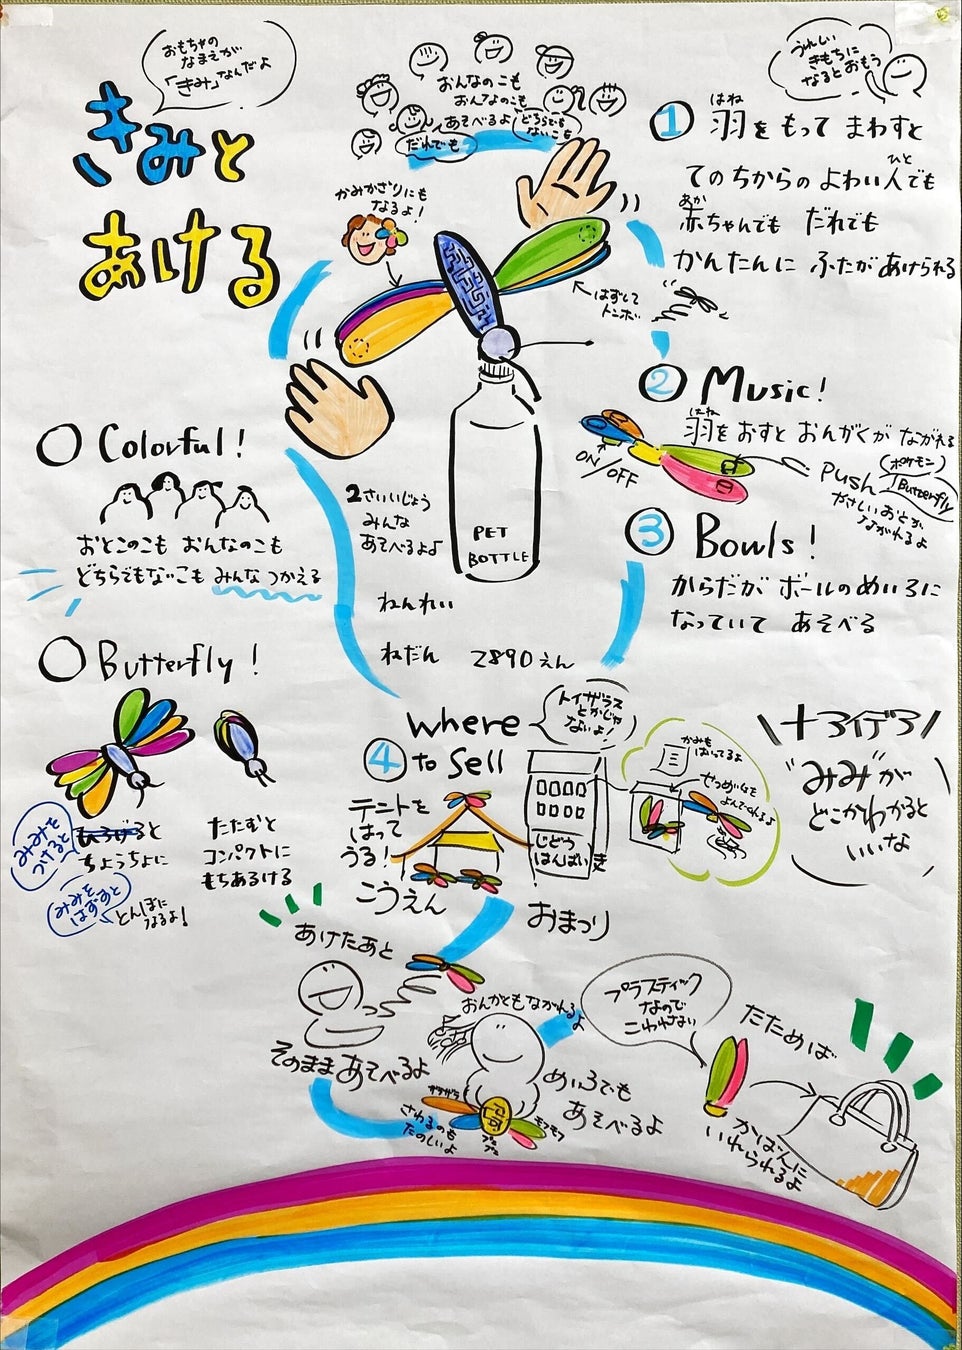 おもちゃの
なまえが
「きみ」なんだよ
きみと
あける
おんなのこも
おんなのこも
あそべるよ
どちらでも
ないこも
だれでも
うれしい
きもちに
なるとおもう
① 羽をもってまわすと
はね
てのちからのよわい人でも
ひと
赤ちゃんでも だれでも
あか
かんたんに ふたがあけられる
かみかざりにも
なるよ!
はずして
トンボ
② Music!
羽をおすと おんがくが ながれる
はね
ON/OFF
Push
(ポケモン)
Butterfly
やさしいおとが
ながれるよ
③ Bowls!
からだが ボールのめいろに
なっていて あそべる
○ Colorful!
おとこのこも おんなのこも
どちらでもないこも みんなつかえる
2さいいじょう
みんな
あそべるよ♪
PET
BOTTLE
ねんれい
ねだん 2890えん
○ Butterfly!
みみを
つけると
ひろげると
ちょうちょに
みみを
はずすと
とんぼに
なるよ!
たたむと
コンパクトに
もちあるける
where
④ to Sell
トイザラス
とかじゃ
ないよ!
テントを
はって
うる!
こうえん
じどう
はんばいき
おまつり
かみも
はいってるよ
せつめいを
よんでくれるよ
\十アイデア/
"みみ"が
どこかわかると
いいな
あけたあと
そのままあそべるよ
おんがくもながれるよ
めいろでも
あそべるよ
ザラザラ
さわるのも
たのしいよ
モフモフ
プラスティック
なので
こわれない
たためば
かばんに
いれられるよ